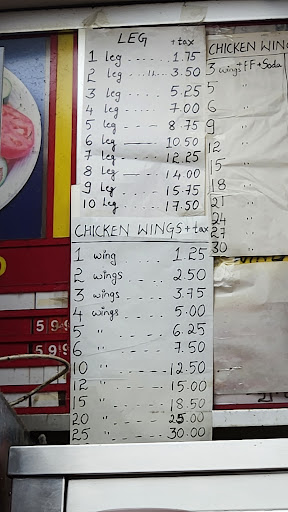 LEG + tax
1 leg .... 1.75
2 leg ........ 3.50
3 leg .... 5.25
4 leg ------ 7.00
5 leg ------ 8.75
6 leg ------ 10.50
7 leg ------ 12.25
8 leg ------ 14.00
9 leg ------ 15.75
10 leg ------ 17.50
CHICKEN WINGS + tax
1 wing ...... 1.25
2 wings .... 2.50
3 wings .... 3.75
4 wings .... 5.00
5 " ------ 6.25
6 " ------ 7.50
10 " ------ 12.50
12 " ------ 15.00
15 " ------ 18.50
20 " ------ 25.00
25 " ------ 30.00
CHICKEN WING
3 wings + FF + Soda
5 "
6 "
9 "
12 "
15 "
18 "
21 "
24 "
27 "
30 "
5 9 9
5 9 9